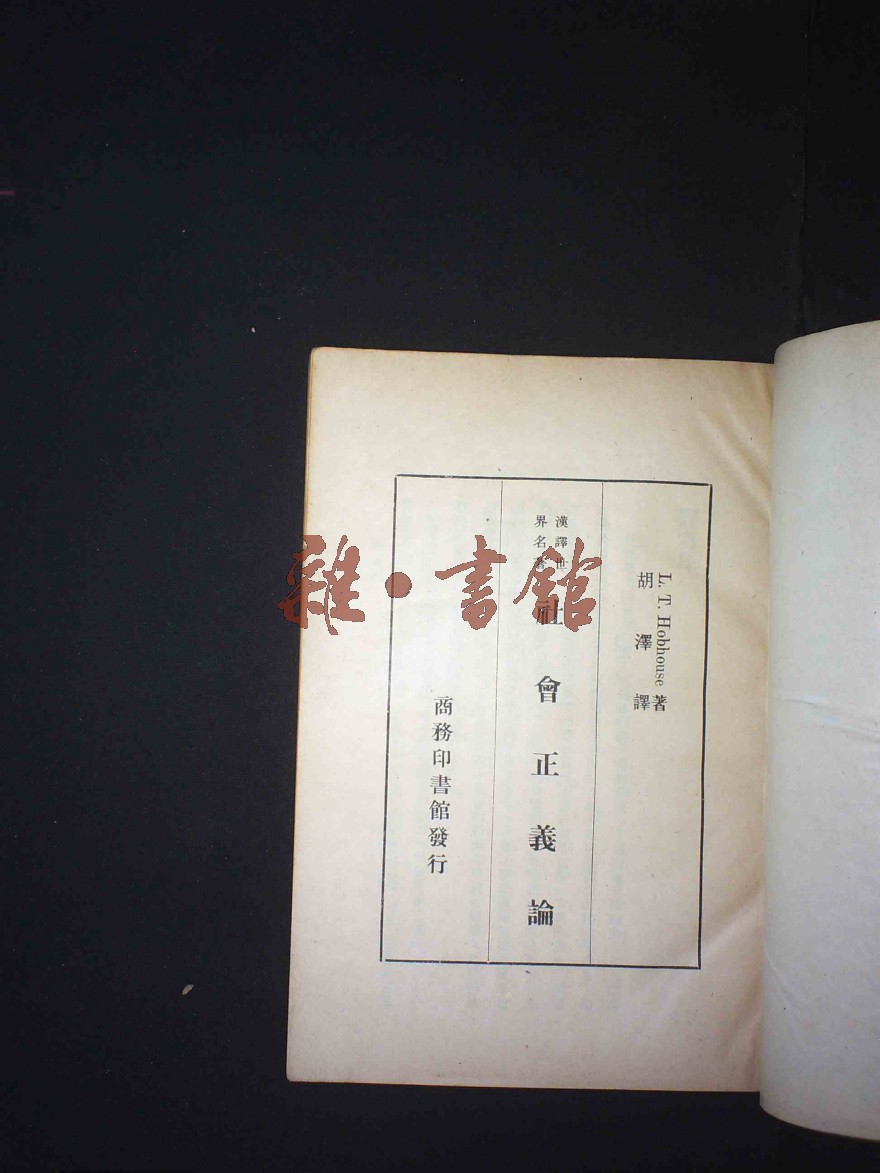 L. T. Hobhouse 著
胡澤譯
漢譯世
界名著
社會正義論
商務印書館發行
雜·書館